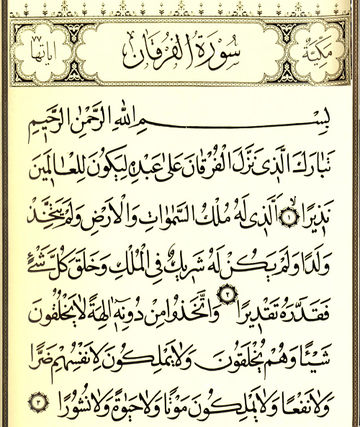 مكية سورة الفرقان آياتها ٧٧
بِسْمِ اللهِ الرَّحْمٰنِ الرَّحِيمِ
تَبَارَكَ الَّذِي نَزَّلَ الْفُرْقَانَ عَلٰى عَبْدِهِ لِيَكُونَ لِلْعَالَمِينَ
نَذِيرًا ١ اَلَّذِي لَهُ مُلْكُ السَّمٰوَاتِ وَالْاَرْضِ وَلَمْ يَتَّخِذْ
وَلَدًا وَلَمْ يَكُنْ لَهُ شَرِيكٌ فِي الْمُلْكِ وَخَلَقَ كُلَّ شَيْءٍ
فَقَدَّرَهُ تَقْدِيرًا ٢ وَاتَّخَذُوا مِنْ دُونِهِ اٰلِهَةً لَا يَخْلُقُونَ
شَيْـًٔا وَهُمْ يُخْلَقُونَ وَلَا يَمْلِكُونَ لِاَنْفُسِهِمْ ضَرًّا
وَلَا نَفْعًا وَلَا يَمْلِكُونَ مَوْتًا وَلَا حَيٰوةً وَلَا نُشُورًا ٣